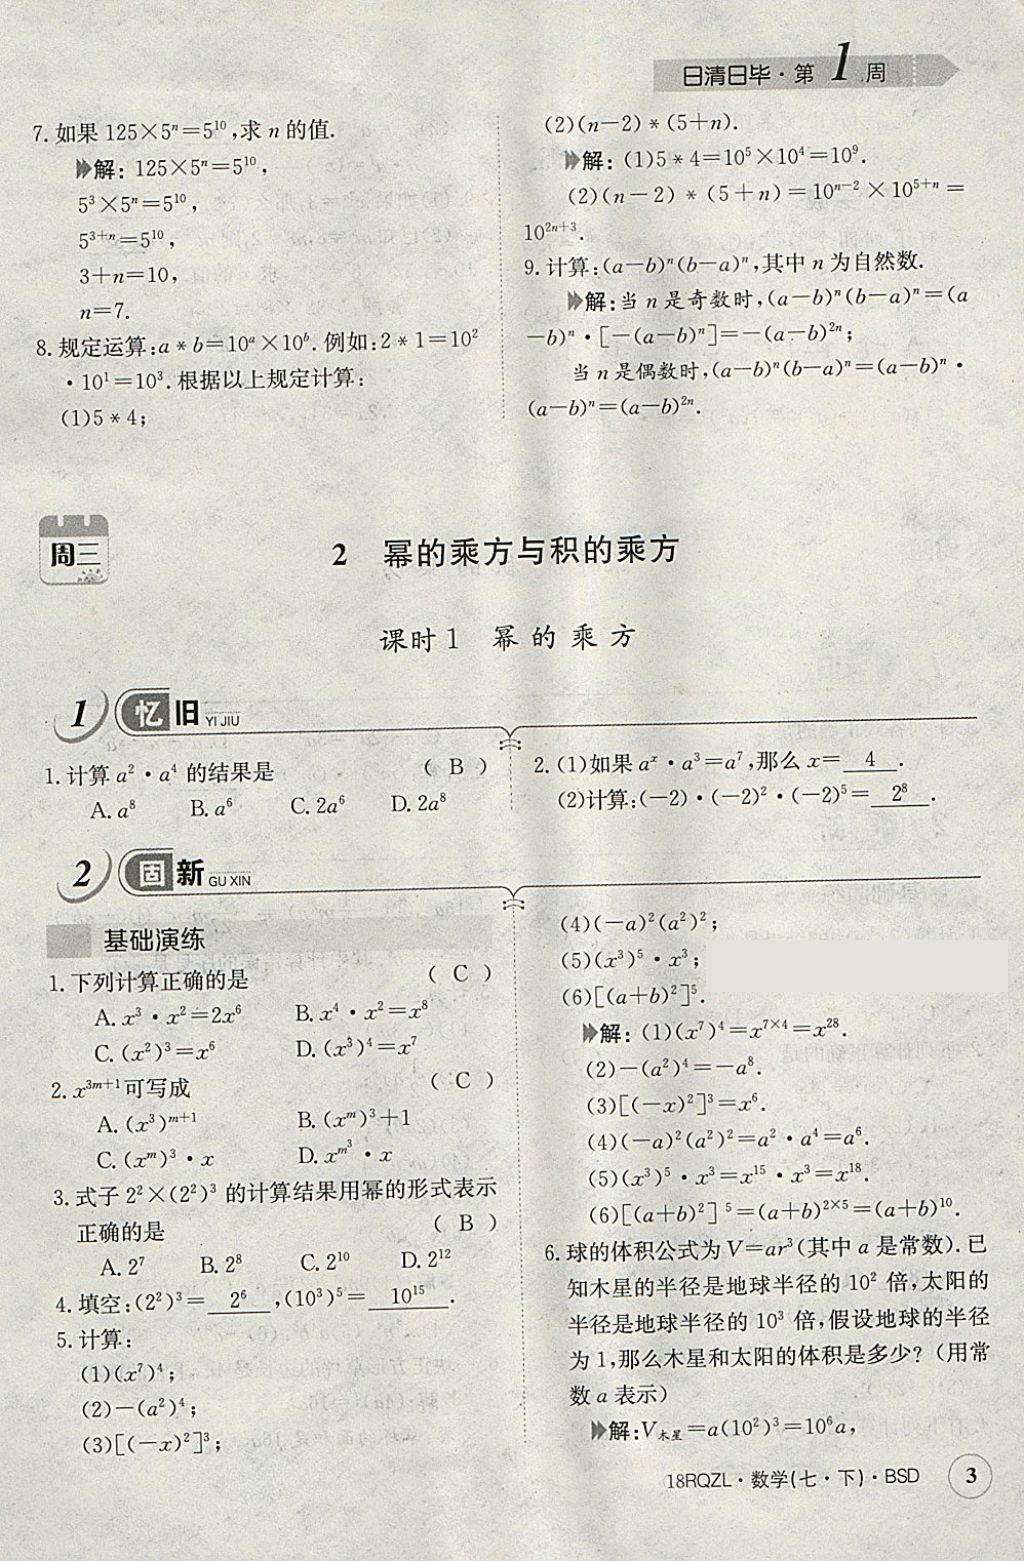 日清日毕·第1周
7.如果125×5ⁿ=5¹⁰,求n的值.
解:125×5ⁿ=5¹⁰,
5³×5ⁿ=5¹⁰,
5³⁺ⁿ=5¹⁰,
3+n=10,
n=7.
8.规定运算:a*b=10ᵃ×10ᵇ.例如:2*1=10²
·10¹=10³.根据以上规定计算:
(1)5*4;
(2)(n-2)*(5+n).
解:(1)5*4=10⁵×10⁴=10⁹.
(2)(n-2)*(5+n)=10ⁿ⁻²×10⁵⁺ⁿ=
10²ⁿ⁺³.
9.计算:(a-b)ⁿ(b-a)ⁿ,其中n为自然数.
解:当n是奇数时,(a-b)ⁿ(b-a)ⁿ=(a
-b)ⁿ·[-(a-b)ⁿ]=-(a-b)²ⁿ;
当n是偶数时,(a-b)ⁿ(b-a)ⁿ=(a-b)ⁿ·
(a-b)ⁿ=(a-b)²ⁿ.
周三
2 幂的乘方与积的乘方
课时1 幂的乘方
1 忆旧 YI JIU
1.计算a²·a⁴的结果是 (B)
A.a⁸ B.a⁶ C.2a⁶ D.2a⁸
2.(1)如果aˣ·a³=a⁷,那么x=4.
(2)计算:(-2)·(-2)²·(-2)⁵=2⁸.
2 固新 GU XIN
基础演练
1.下列计算正确的是 (C)
A.x³·x²=2x⁶ B.x⁴·x²=x⁸
C.(x²)³=x⁶ D.(x³)⁴=x⁷
2.x³ᵐ⁺¹可写成 (C)
A.(x³)ᵐ⁺¹ B.(xᵐ)³+1
C.(xᵐ)³·x D.x^{m³}·x
3.式子2²×(2²)³的计算结果用幂的形式表示
正确的是 (B)
A.2⁷ B.2⁸ C.2¹⁰ D.2¹²
4.填空:(2²)³=2⁶,(10³)⁵=10¹⁵.
5.计算:
(1)(x⁷)⁴;
(2)-(a²)⁴;
(3)[(-x)²]³;
(4)(-a)²(a²)²;
(5)(x³)⁵·x³;
(6)[(a+b)²]⁵.
解:(1)(x⁷)⁴=x⁷ˣ⁴=x²⁸.
(2)-(a²)⁴=-a⁸.
(3)[(-x)²]³=x⁶.
(4)(-a)²(a²)²=a²·a⁴=a⁶.
(5)(x³)⁵·x³=x¹⁵·x³=x¹⁸.
(6)[(a+b)²]⁵=(a+b)²ˣ⁵=(a+b)¹⁰.
6.球的体积公式为V=ar³(其中a是常数).已
知木星的半径是地球半径的10²倍,太阳的
半径是地球半径的10³倍,假设地球的半径
为1,那么木星和太阳的体积是多少?(用常
数a表示)
解:V木星=a(10²)³=10⁶a,
18RQZL·数学(七·下)·BSD 3